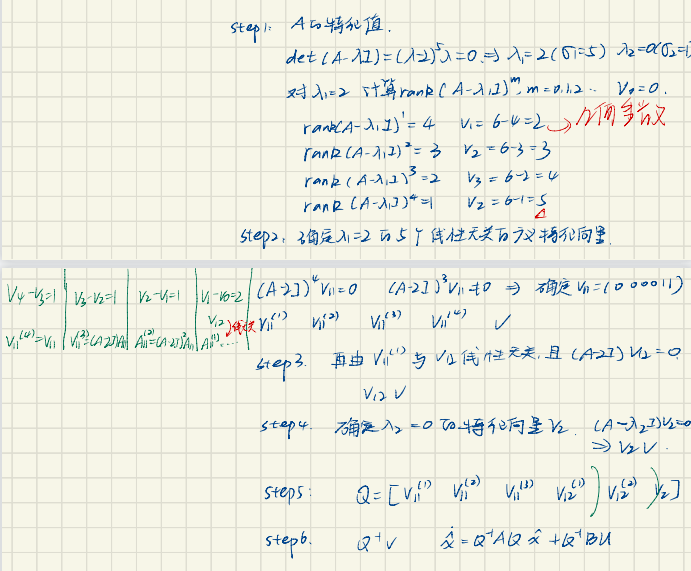 step1: A的特征值.
det(A-λI)=(λ-2)⁵λ=0. ⇒ λ₁=2(σ₁=5) λ₂=0(σ₂=1
对λ₁=2 计算rank(A-λ₁I)ᵐ, m=0,1,2.. V₀=0.
rank(A-λ₁I)¹=4 V₁=6-4=2 几何多重
rank(A-λ₁I)²=3 V₂=6-3=3
rank(A-λ₁I)³=2 V₃=6-2=4
rank(A-λ₁I)⁴=1 V₂=6-1=5
step2. 确定λ₁=2的5个线性无关的广义特征向量
V₄-V₃=1 | V₃-V₂=1 | V₂-V₁=1 | V₁-V₀=2 (A-2I)⁴V₁₁=0 (A-2I)³V₁₁≠0 ⇒ 确定V₁₁=(000011)
V₁₂
V₁₁⁽⁴⁾=V₁₁ V₁₁⁽³⁾=(A-2I)A₁₁ A₁₁⁽²⁾=(A-2I)²A₁₁ A₁₁⁽¹⁾... V₁₁⁽¹⁾ V₁₁⁽²⁾ V₁₁⁽³⁾ V₁₁⁽⁴⁾ ✓
step3. 再由V₁₁⁽¹⁾与V₁₂线性无关.且(A-2I)V₁₂=0.
V₁₂ ✓
step4. 确定λ₂=0的特征向量V₂. (A-λ₂I)V₂=0
⇒ V₂ ✓.
step5: Q=[V₁₁⁽¹⁾ V₁₁⁽²⁾ V₁₁⁽³⁾ V₁₂⁽¹⁾ ) V₁₂⁽²⁾ ) V₂]
step6. Q⁻¹ ✓ ẋ̂=Q⁻¹AQ x̂+Q⁻¹BU